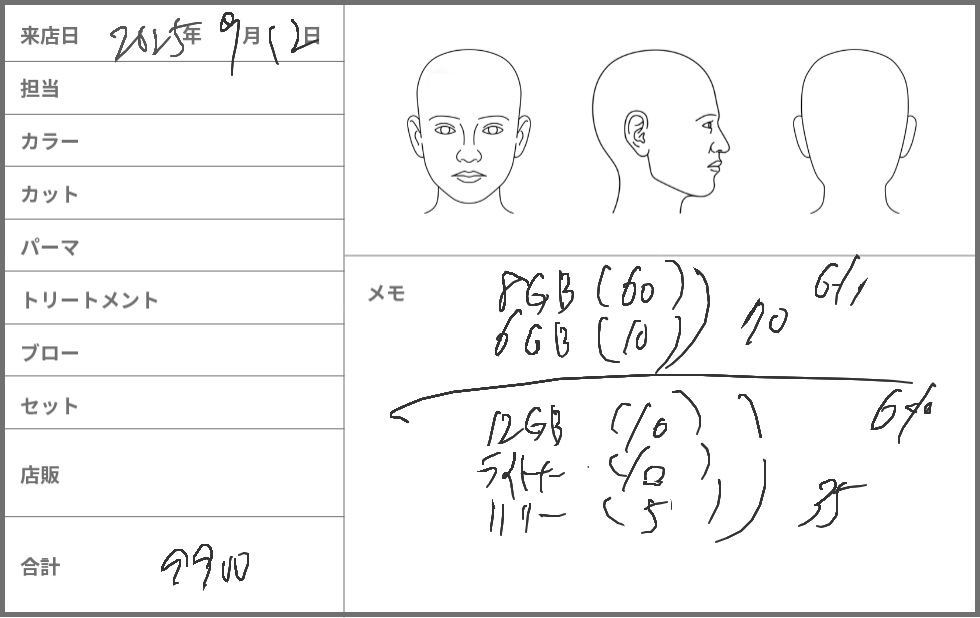 来店日 2025年 9月12日
担当
カラー
カット
パーマ
トリートメント
ブロー
セット
店販
合計 9900
メモ
8GB (60) 6%
6GB (10) 70
12GB (10) 6%
ライトナー (10)
(5) 35